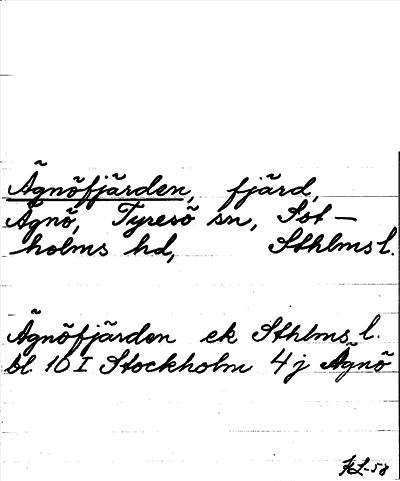 Ägnöfjärden, fjärd,
Ägnö, Tyresö sn, Sot-
holms hd, Sthlms l.
Ägnöfjärden ek Sthlms l.
bl. 10 I Stockholm 4 j Ägnö
-58